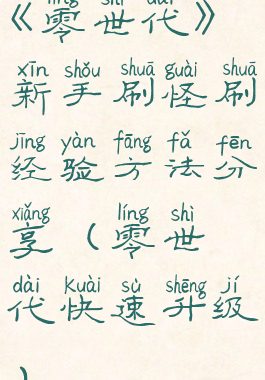 líng shì dài
《零世代》
xīn shǒu shuā guài shuā
新手刷怪刷
jīng yàn fāng fǎ fēn
经验方法分
xiǎng líng shì
享（零世
dài kuài sù shēng jí
代快速升级
）